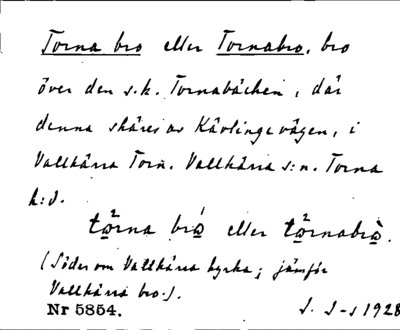 Torna bro eller Tornabro, bro
över den s.k. Tornabäcken, där
denna skäres av Kävlingevägen, i
Vallkärra Torn. Vallkärra s:n. Torna
h:d.
tω̊rna brώ eller tω̊rnabrὼ.
(Söder om Vallkärra kyrka; jämför
Vallkärra bro.).
Nr 5854.
1928